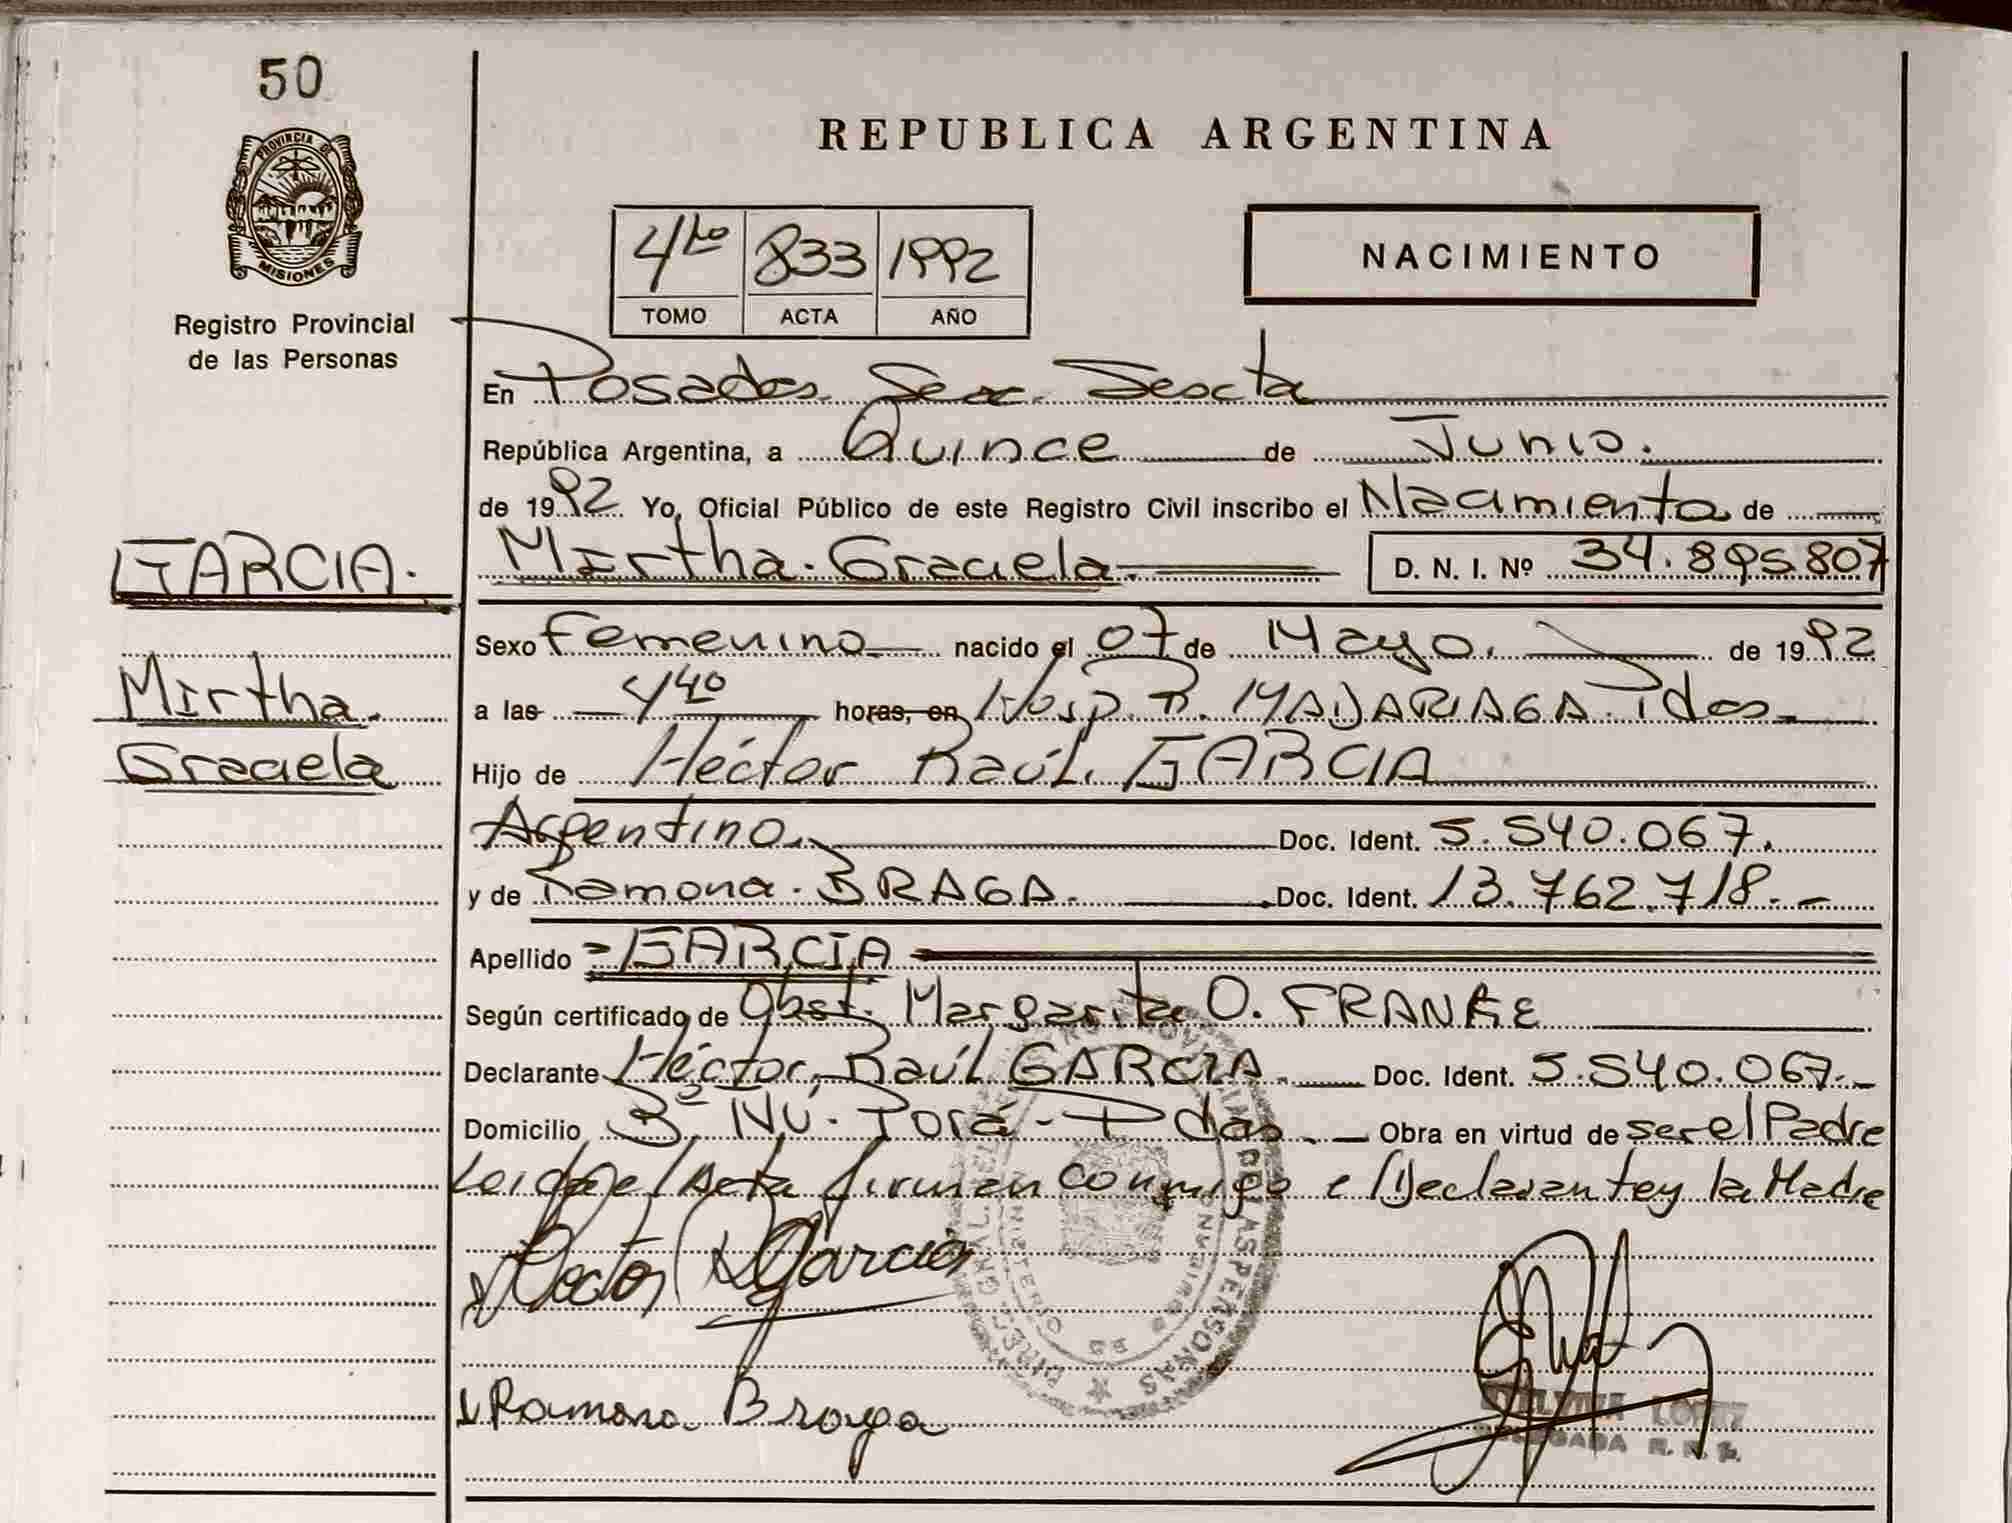 50
PROVINCIA DE
MISIONES
Registro Provincial
de las Personas
REPUBLICA ARGENTINA
4to 833 1992
TOMO ACTA AÑO
NACIMIENTO
En Posadas Secc. Sexcta
República Argentina, a Quince de Junio.
de 1992. Yo, Oficial Público de este Registro Civil inscribo el Nacimiento de
GARCIA.
Mirtha. Graciela. D. N. I. Nº 34.895.807
Sexo Femenino nacido el 07 de Mayo. de 1992
Mirtha.
Graciela
a las 4 40 horas, en Hosp. R. MADARIAGA Pdas
Hijo de Héctor Raúl. GARCIA
Argentino. Doc. Ident. 5.540.067.
y de Ramona. BRAGA. Doc. Ident. 13.762.718.-
Apellido = GARCIA
Según certificado de Obst. Margarita O. FRANKE
Declarante Héctor Raúl GARCIA. Doc. Ident. 5.540.067.-
Domicilio Bº Ñú. Porá - Pdas. Obra en virtud de ser el Padre
Leida el Acta firman conmigo el Declarante y la Madre
Hector R Garcia
DIREC. GRAL. DEL PROVINCIAL DE LAS PERSONAS
Ramona Braga
LOPEZ
DELEGADA R. P. P.